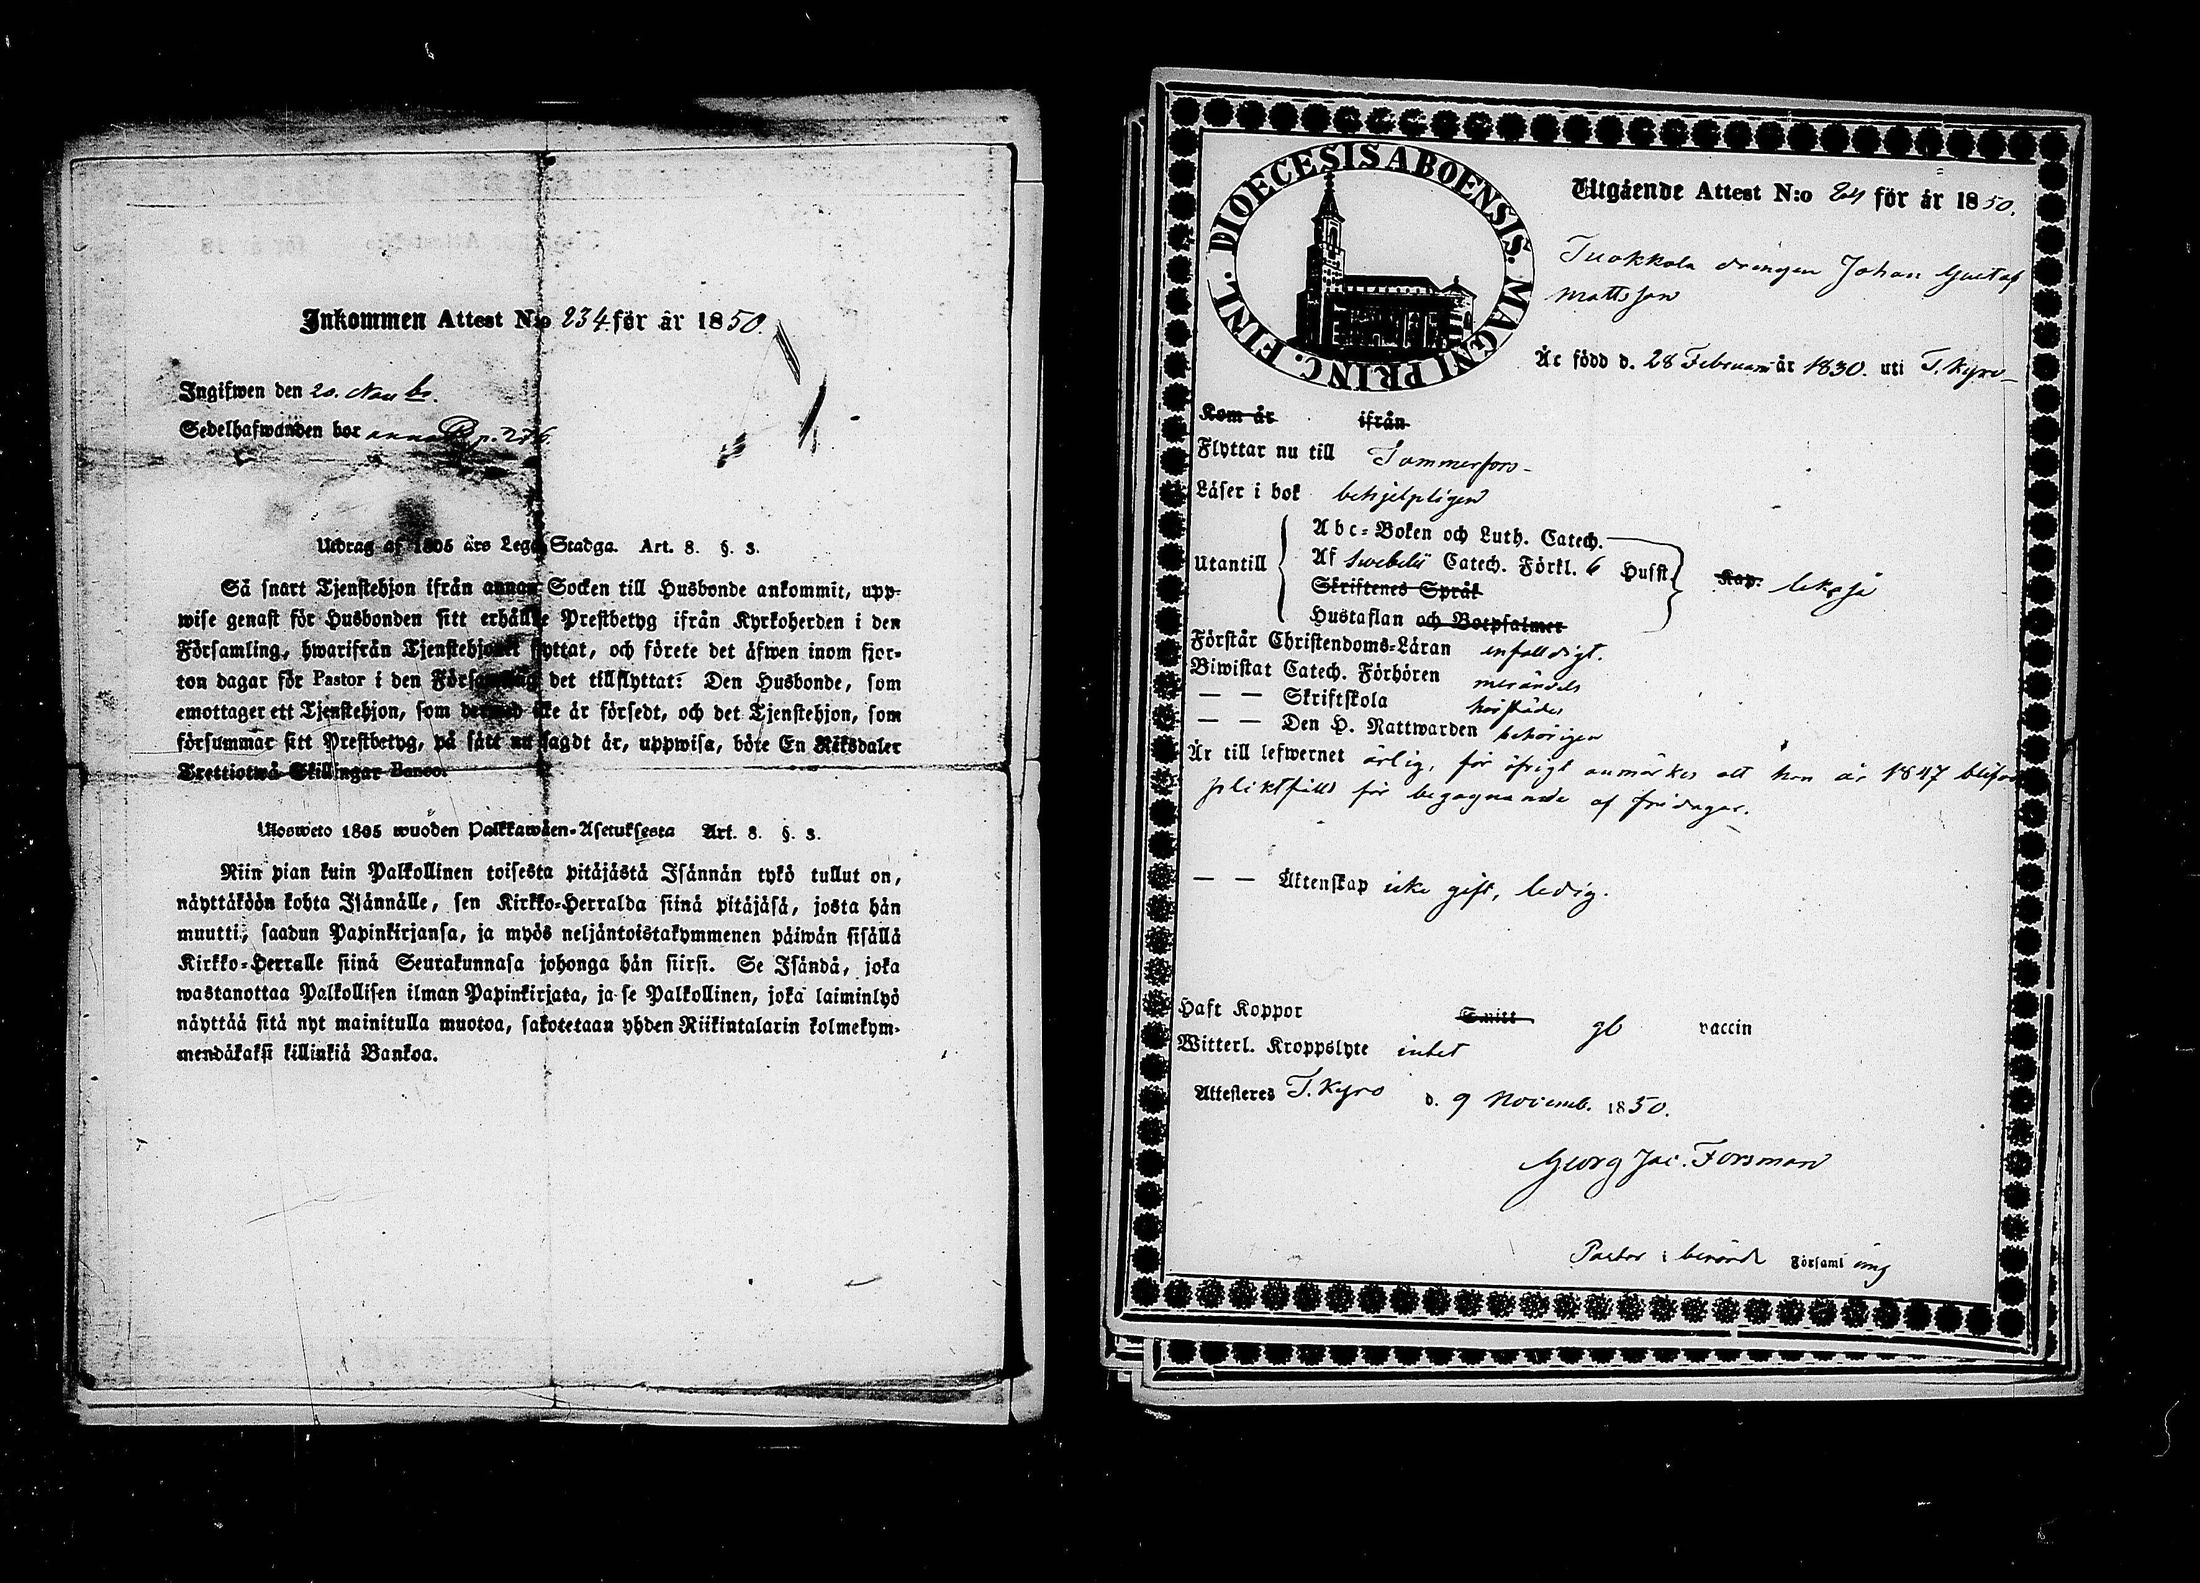 Inkommen Attest N:o 234 för år 1850.
Ingifwen den 20. Novbr.
Sedelhafwanden bor p. 276.
Utdrag af 1805 års Lego Stadga. Art. 8. §. 3.
Så snart Tjenstehjon ifrån annan Socken till Husbonde ankommit, upp-
wise genast för Husbonden sitt erhållne Prestbetyg ifrån Kyrkoherden i den
Församling, hwarifrån Tjenstehjonet flyttat, och förete det äfwen inom fjor-
ton dagar för Pastor i den Församling det tillflyttat: Den Husbonde, som
emottager ett Tjenstehjon, som dermed icke är försedt, och det Tjenstehjon, som
försummar sitt Prestbetyg, på sätt nu sagdt är, uppwisa, böte En Riksdaler
Trettiotwå Skillingar Banco.
Ulosweto 1805 wuoden Palkkawäen-Asetuksesta Art. 8. §. 3.
Niin pian kuin Palkollinen toisesta pitäjästä Isännän tykö tullut on,
näyttäköön kohta Isännälle, sen Kirkko-Herralda siinä pitäjäsä, josta hän
muutti, saadun Papinkirjansa, ja myös neljäntoistakymmenen päiwän sisällä
Kirkko-Herralle siinä Seurakunnasa johonga hän siirsi. Se Isändä, joka
wastanottaa Palkollisen ilman Papinkirjata, ja se Palkollinen, joka laiminlyö
näyttää sitä nyt mainitulla muotoa, sakotetaan yhden Riikintalarin kolmekym-
mendäkaksi killinkiä Bankoa.
DIOECESIS ABOENSIS. MAGNI PRINC. FINL.
Utgående Attest N:o 24 för år 1850.
Tuokkola drängen Johan Gustaf
Mattsson
Är född d. 28 Februari år 1830. uti T. Kyro
Kom år ifrån
Flyttar nu till Tammerfors
Läser i bok behjelpligen
Utantill
Abc-Boken och Luth. Catech.
Af Swebelii Catech. Förkl. 6 Husst. Kap. lika så
Skriftenes Språk
Hustaflan och Botpsalmer
Förstår Christendoms-Läran enfalldigt.
Biwistat Catech. Förhören merändels
— — Skriftskola
— — Den H. Nattwarden behörigen
Är till lefwernet ärlig, för öfrigt anmärkes att han år 1847 blifvit
pliktfälld för begagnande af fridagar.
— — Äktenskap icke gift, ledig.
Haft Koppor Smitt gb vaccin
Witterl. Kroppslyte intet
Attesteres T. Kyro d. 9 Novemb. 1850.
Georg Jac. Forsman
Pastor i berörde Församling